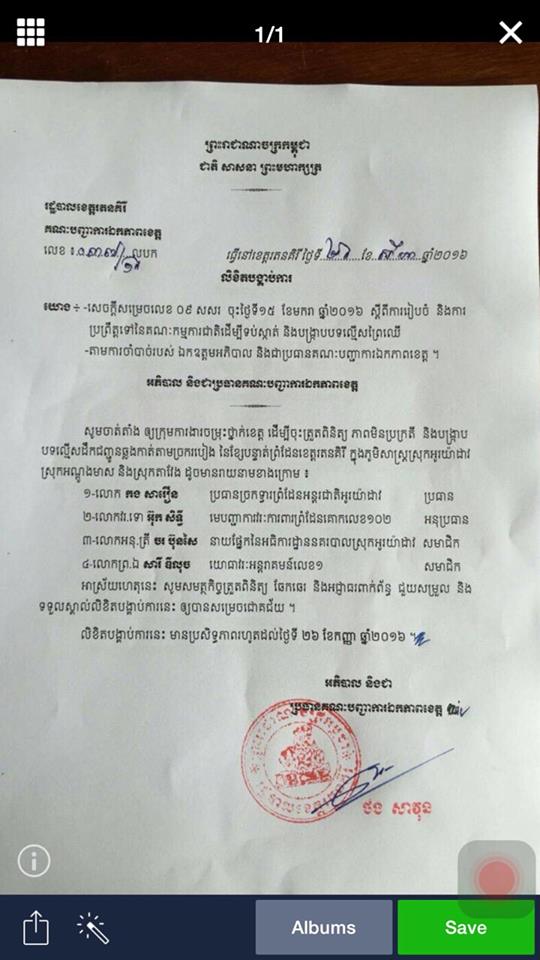 1/1
ព្រះរាជាណាចក្រកម្ពុជា
ជាតិ សាសនា ព្រះមហាក្សត្រ
រដ្ឋបាលខេត្តរតនគិរី
គណៈបញ្ជាការឯកភាពខេត្ត
លេខ ៖ លបក
ធ្វើនៅខេត្តរតនគិរី ថ្ងៃទី ខែ សីហា ឆ្នាំ២០១៦
លិខិតបង្គាប់ការ
យោង ៖ -សេចក្តីសម្រេចលេខ ០៩ សសរ ចុះថ្ងៃទី១៥ ខែមករា ឆ្នាំ២០១៦ ស្តីពីការរៀបចំ និងការ
ប្រព្រឹត្តទៅនៃគណៈកម្មការជាតិដើម្បីទប់ស្កាត់ និងបង្ក្រាបបទល្មើសព្រៃឈើ
-តាមការចាំបាច់របស់ ឯកឧត្តមអភិបាល និងជាប្រធានគណៈបញ្ជាការឯកភាពខេត្ត ។
អភិបាល និងជាប្រធានគណៈបញ្ជាការឯកភាពខេត្ត
សូមចាត់តាំង ឲ្យក្រុមការងារចម្រុះថ្នាក់ខេត្ត ដើម្បីចុះត្រួតពិនិត្យ ភាពមិនប្រក្រតី និងបង្ក្រាប
បទល្មើសដឹកជញ្ជូនឆ្លងកាត់តាមច្រករបៀង នៃខ្សែបន្ទាត់ព្រំដែនខេត្តរតនគិរី ក្នុងភូមិសាស្ត្រស្រុកអូរយ៉ាដាវ
ស្រុកអណ្តូងមាស និងស្រុកតាវែង ដូចមានរាយនាមខាងក្រោម ៖
១-លោក កង សារឿន ប្រធានច្រកទ្វារព្រំដែនអន្តរជាតិអូរយ៉ាដាវ ប្រធាន
២-លោកវរៈទោ អ៊ុក សិទ្ធី មេបញ្ជាការវរៈការពារព្រំដែនគោកលេខ១០២ អនុប្រធាន
៣-លោកអនុ.ត្រី ប៊ុនសៃ នាយផ្នែកនៃអធិការដ្ឋាននគរបាលស្រុកអូរយ៉ាដាវ សមាជិក
៤-លោកព្រ.ឯ សារី ឌីលុច យោធាវរៈអន្តរាគមន៍លេខ១ សមាជិក
អាស្រ័យហេតុនេះ សូមសមត្ថកិច្ចត្រួតពិនិត្យ ចែកចេរ និងអជ្ញាធរពាក់ព័ន្ធ ជួយសម្រួល និង
ទទួលស្គាល់លិខិតបង្គាប់ការនេះ ឲ្យបានសម្រេចជោគជ័យ ។
លិខិតបង្គាប់ការនេះ មានប្រសិទ្ធភាពរហូតដល់ថ្ងៃទី ២៦ ខែកញ្ញា ឆ្នាំ២០១៦ ។
អភិបាល និងជា
ប្រធានគណៈបញ្ជាការឯកភាពខេត្ត
ថង សាវុន
Albums
Save